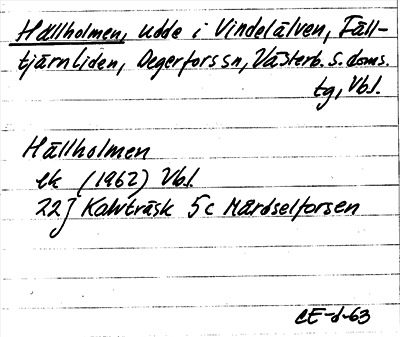 Hällholmen, udde i Vindelälven, Fäll-
tjärnliden, Degerfors sn, Västerb. s. doms.
tg, Vbl.
Hällholmen
ek (1962) Vbl.
22J Kalvträsk 5c Mårdselforsen
CE-d-63